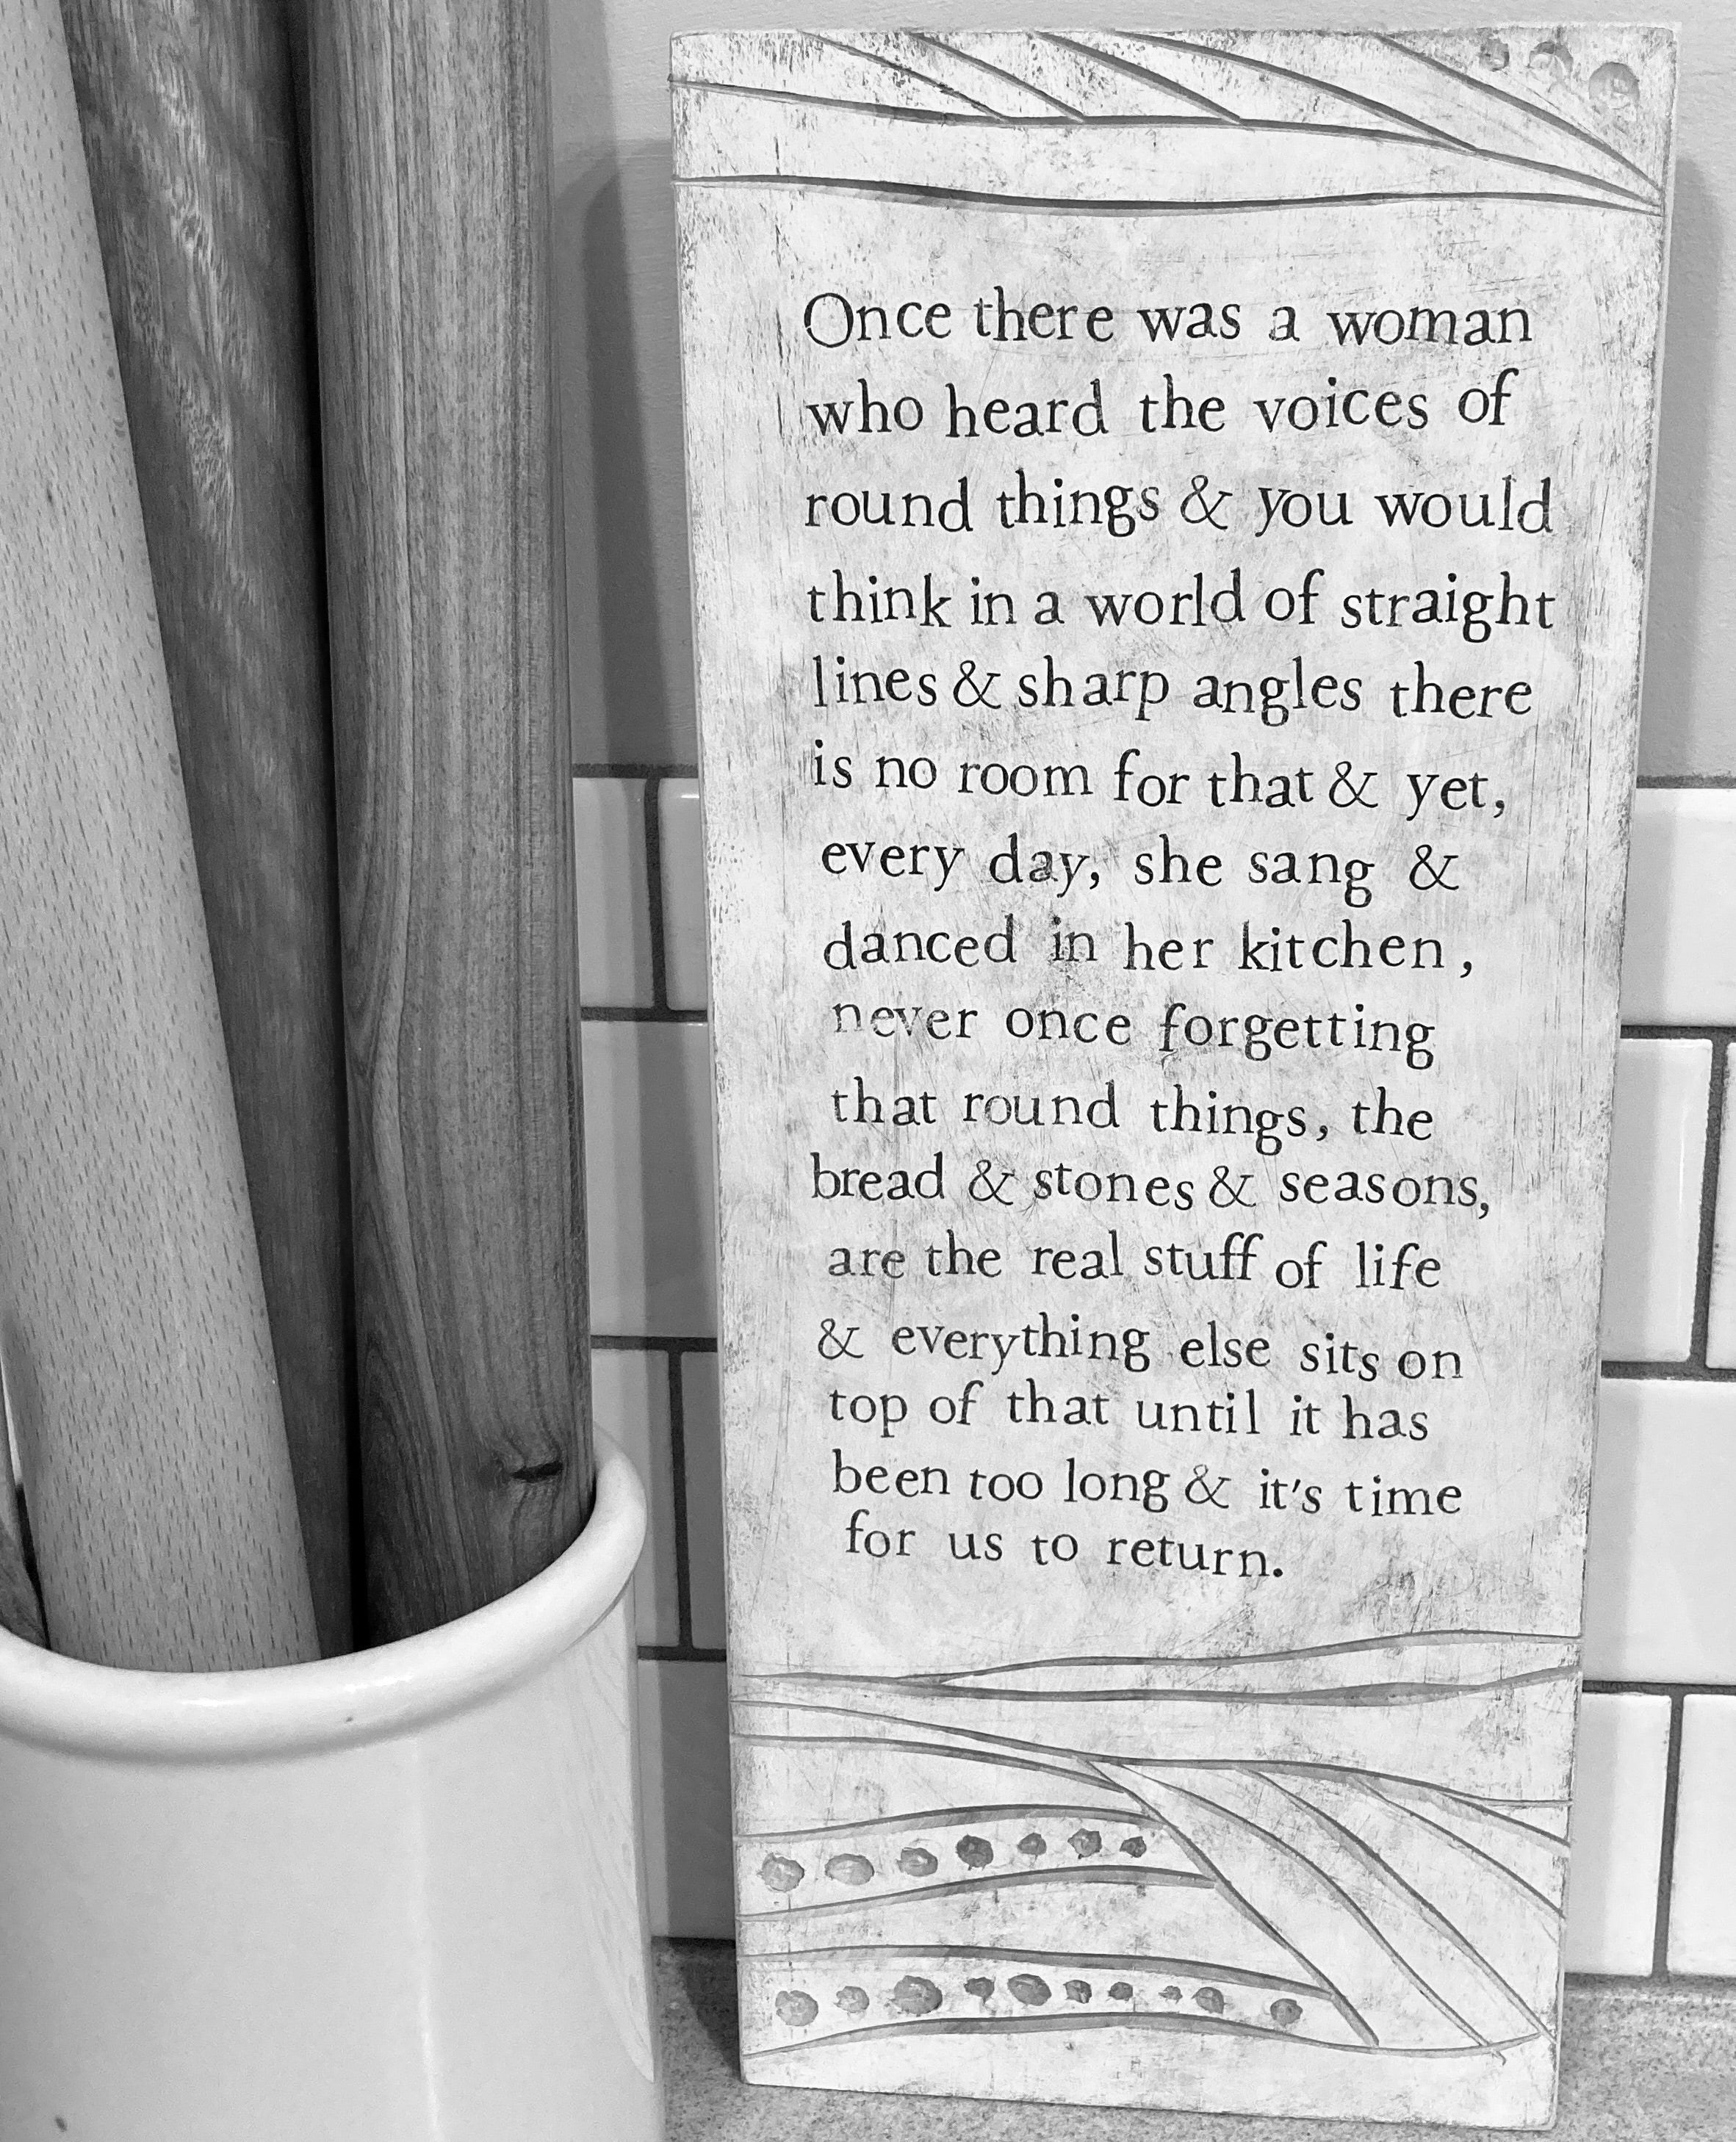 Once there was a woman
who heard the voices of
round things & you would
think in a world of straight
lines & sharp angles there
is no room for that & yet,
every day, she sang &
danced in her kitchen,
never once forgetting
that round things, the
bread & stones & seasons,
are the real stuff of life
& everything else sits on
top of that until it has
been too long & it's time
for us to return.